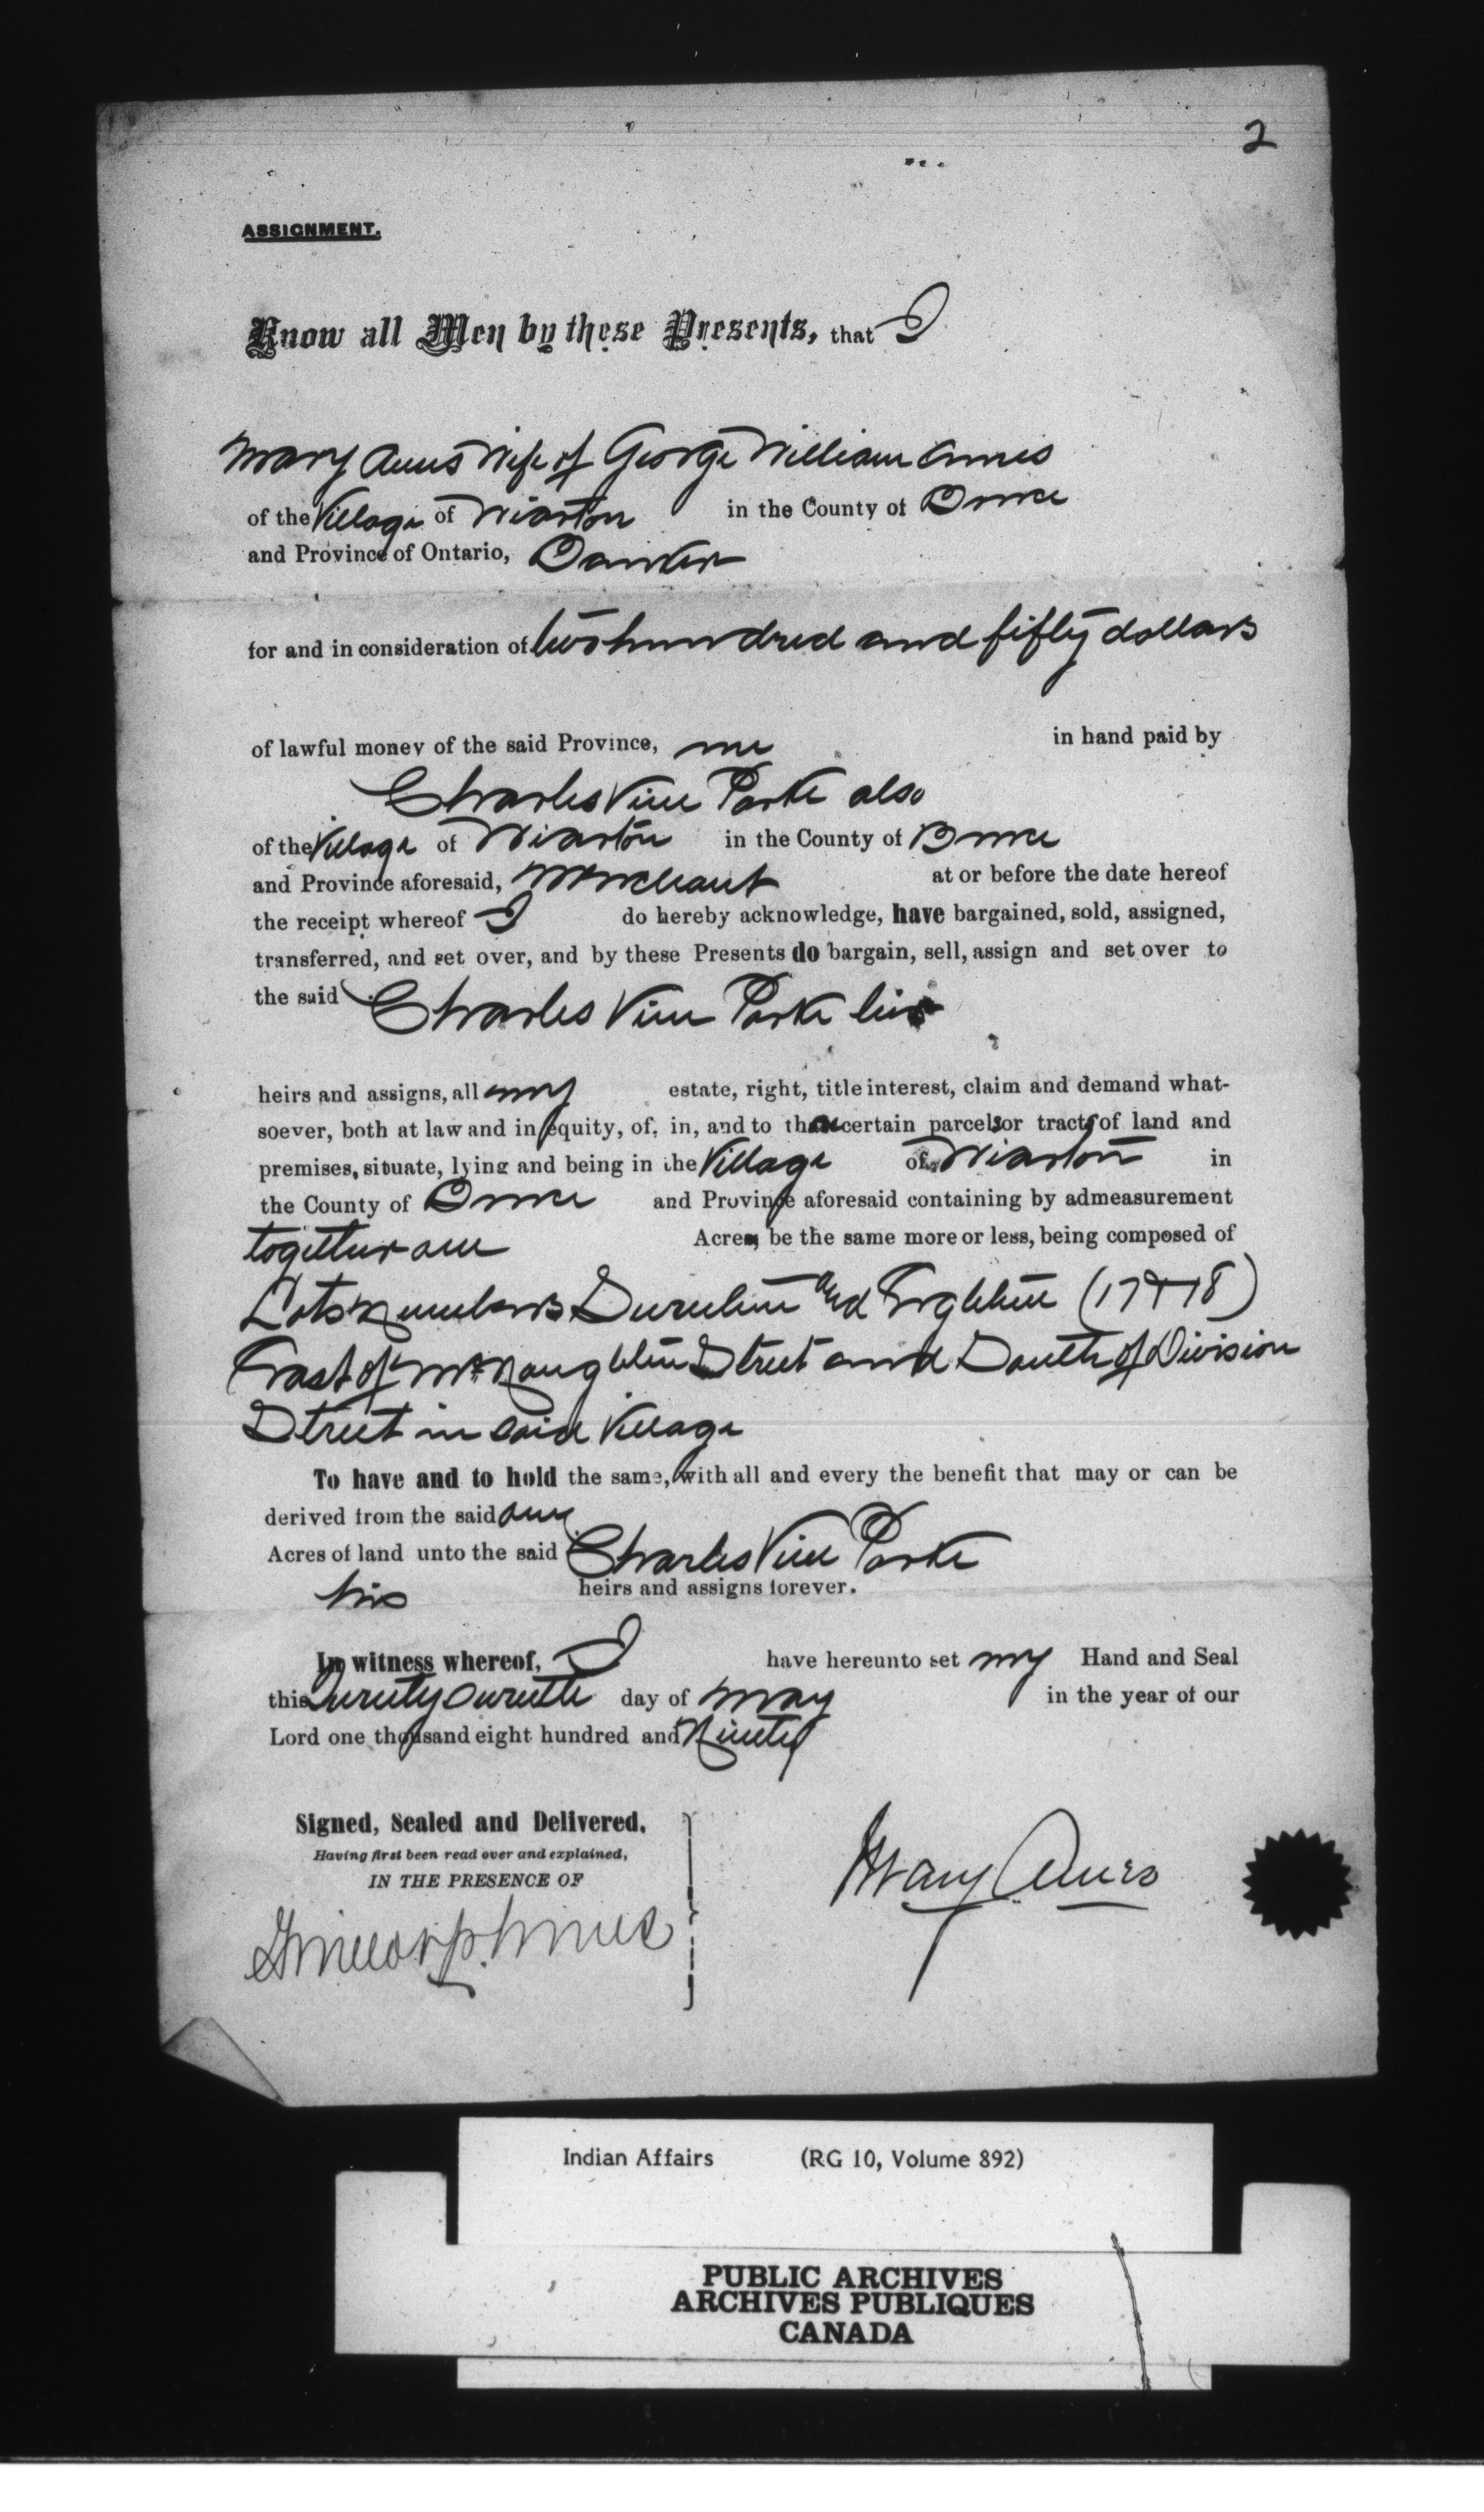 2
ASSIGNMENT.
Know all Men by these Presents, that I
Mary Ames Wife of George William Ames
of the Village of Wiarton in the County of Bruce
and Province of Ontario, Banker
for and in consideration of two hundred and fifty dollars
of lawful money of the said Province, me in hand paid by
Charles Vine Parke also
of the Village of Wiarton in the County of Bruce
and Province aforesaid, Merchant at or before the date hereof
the receipt whereof I do hereby acknowledge, have bargained, sold, assigned,
transferred, and set over, and by these Presents do bargain, sell, assign and set over to
the said Charles Vine Parke his
heirs and assigns, all my estate, right, title interest, claim and demand what-
soever, both at law and in equity, of, in, and to those certain parcels or tracts of land and
premises, situate, lying and being in the Village of Wiarton in
the County of Bruce and Province aforesaid containing by admeasurement
together one Acre, be the same more or less, being composed of
Lots numbers Seventeen and Eighteen (17 & 18)
East of McNaughton Street and South of Division
Street in said Village
To have and to hold the same, with all and every the benefit that may or can be
derived from the said one
Acres of land unto the said Charles Vine Parke
his heirs and assigns forever.
In witness whereof, I have hereunto set my Hand and Seal
this Twenty Seventh day of May in the year of our
Lord one thousand eight hundred and Ninety
Signed, Sealed and Delivered,
Having first been read over and explained,
IN THE PRESENCE OF
Mary Ames
Indian Affairs (RG 10, Volume 892)
PUBLIC ARCHIVES
ARCHIVES PUBLIQUES
CANADA